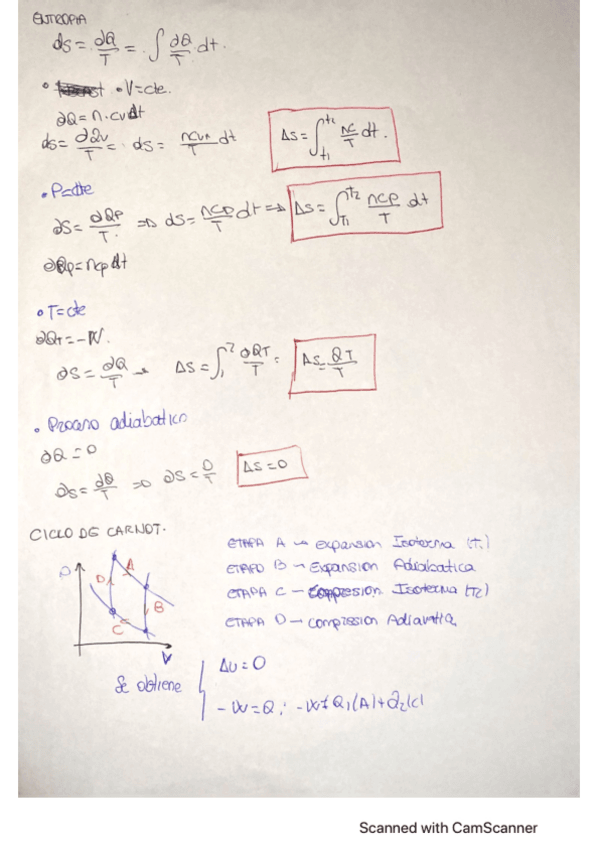 ENTROPIA
ds = ∂Q/T = ∫ ∂Q/T dt.
• V=cte.
∂Q = n.cv dt
ds = ∂Qv/T = ds = ncvn/T dt   ΔS = ∫t1^t2 nc/T dt.
• P=cte
∂S = ∂QP/T. => ds = ncp/T dt => ΔS = ∫T1^T2 ncp/T dt
∂Qp = ncp dt
• T=cte
∂QT = -W.
∂S = ∂Q/T → ΔS = ∫1^2 ∂QT/T = ΔS = QT/T
• Proceso adiabatico
∂Q = 0
∂S = ∂Q/T => ∂S = 0/T   ΔS = 0
CICLO DE CARNOT.
ETAPA A → expansion Isoterma (T1)
ETAPA B → Expansion Adiabatica
ETAPA C → Compresion Isoterma (T2)
ETAPA D → compression
P
A
D
B
C
V
Se obtiene
ΔU = 0
-W = Q; -W = Q1(A) + Q2(C)
Scanned with CamScanner